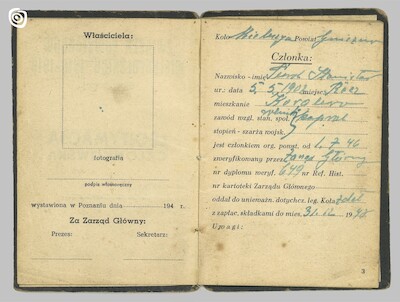 Właściciela:
fotografia
podpis własnoręczny
wystawiona w Poznaniu dnia 194 r.
Za Zarząd Główny:
Prezes: Sekretarz:
Koło Powiat
Członka:
Nazwisko - imię Stanisław
ur.: data 5. 5. 190 miejsce
mieszkanie
zawód rolnik stan. społ.
stopień - szarża wojsk. kapral
jest członkiem org. pomyt. od 1. 7. 46
zweryfikowany przez Zarząd Główny
nr dyplomu weryf. 649 nr Ref. Hist.
nr kartoteki Zarządu Głównego
oddał do unieważn. dotychcz. leg. Koła
z zapłac. składkami do mies. 1948
Uwagi:
3